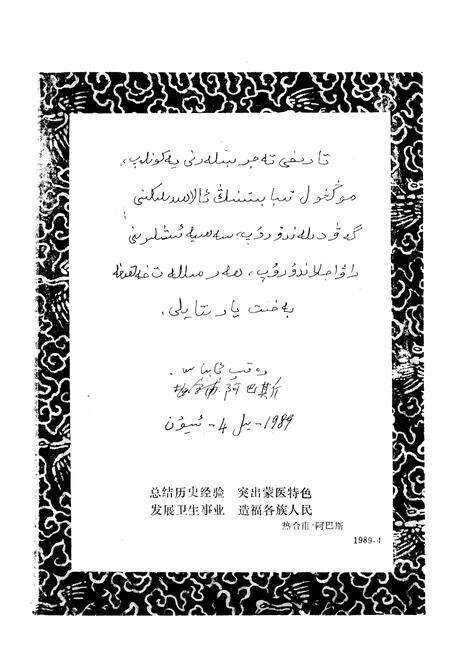 تارىخى تەجرىبىلەرنى يەكۈنلەپ،
موڭغۇل تىبابىتىنىڭ ئالاھىدىلىكىنى
گەۋدىلەندۈرۈپ، سەھىيە ئىشلىرىنى
راۋاجلاندۇرۇپ، ھەر مىللەت خەلقىغە
بەخت يارىتايلى.
ئابباس.
阿巴斯
1989- يىل 4-
总结历史经验 突出蒙医特色
发展卫生事业 造福各族人民
热合甫·阿巴斯
1989-4